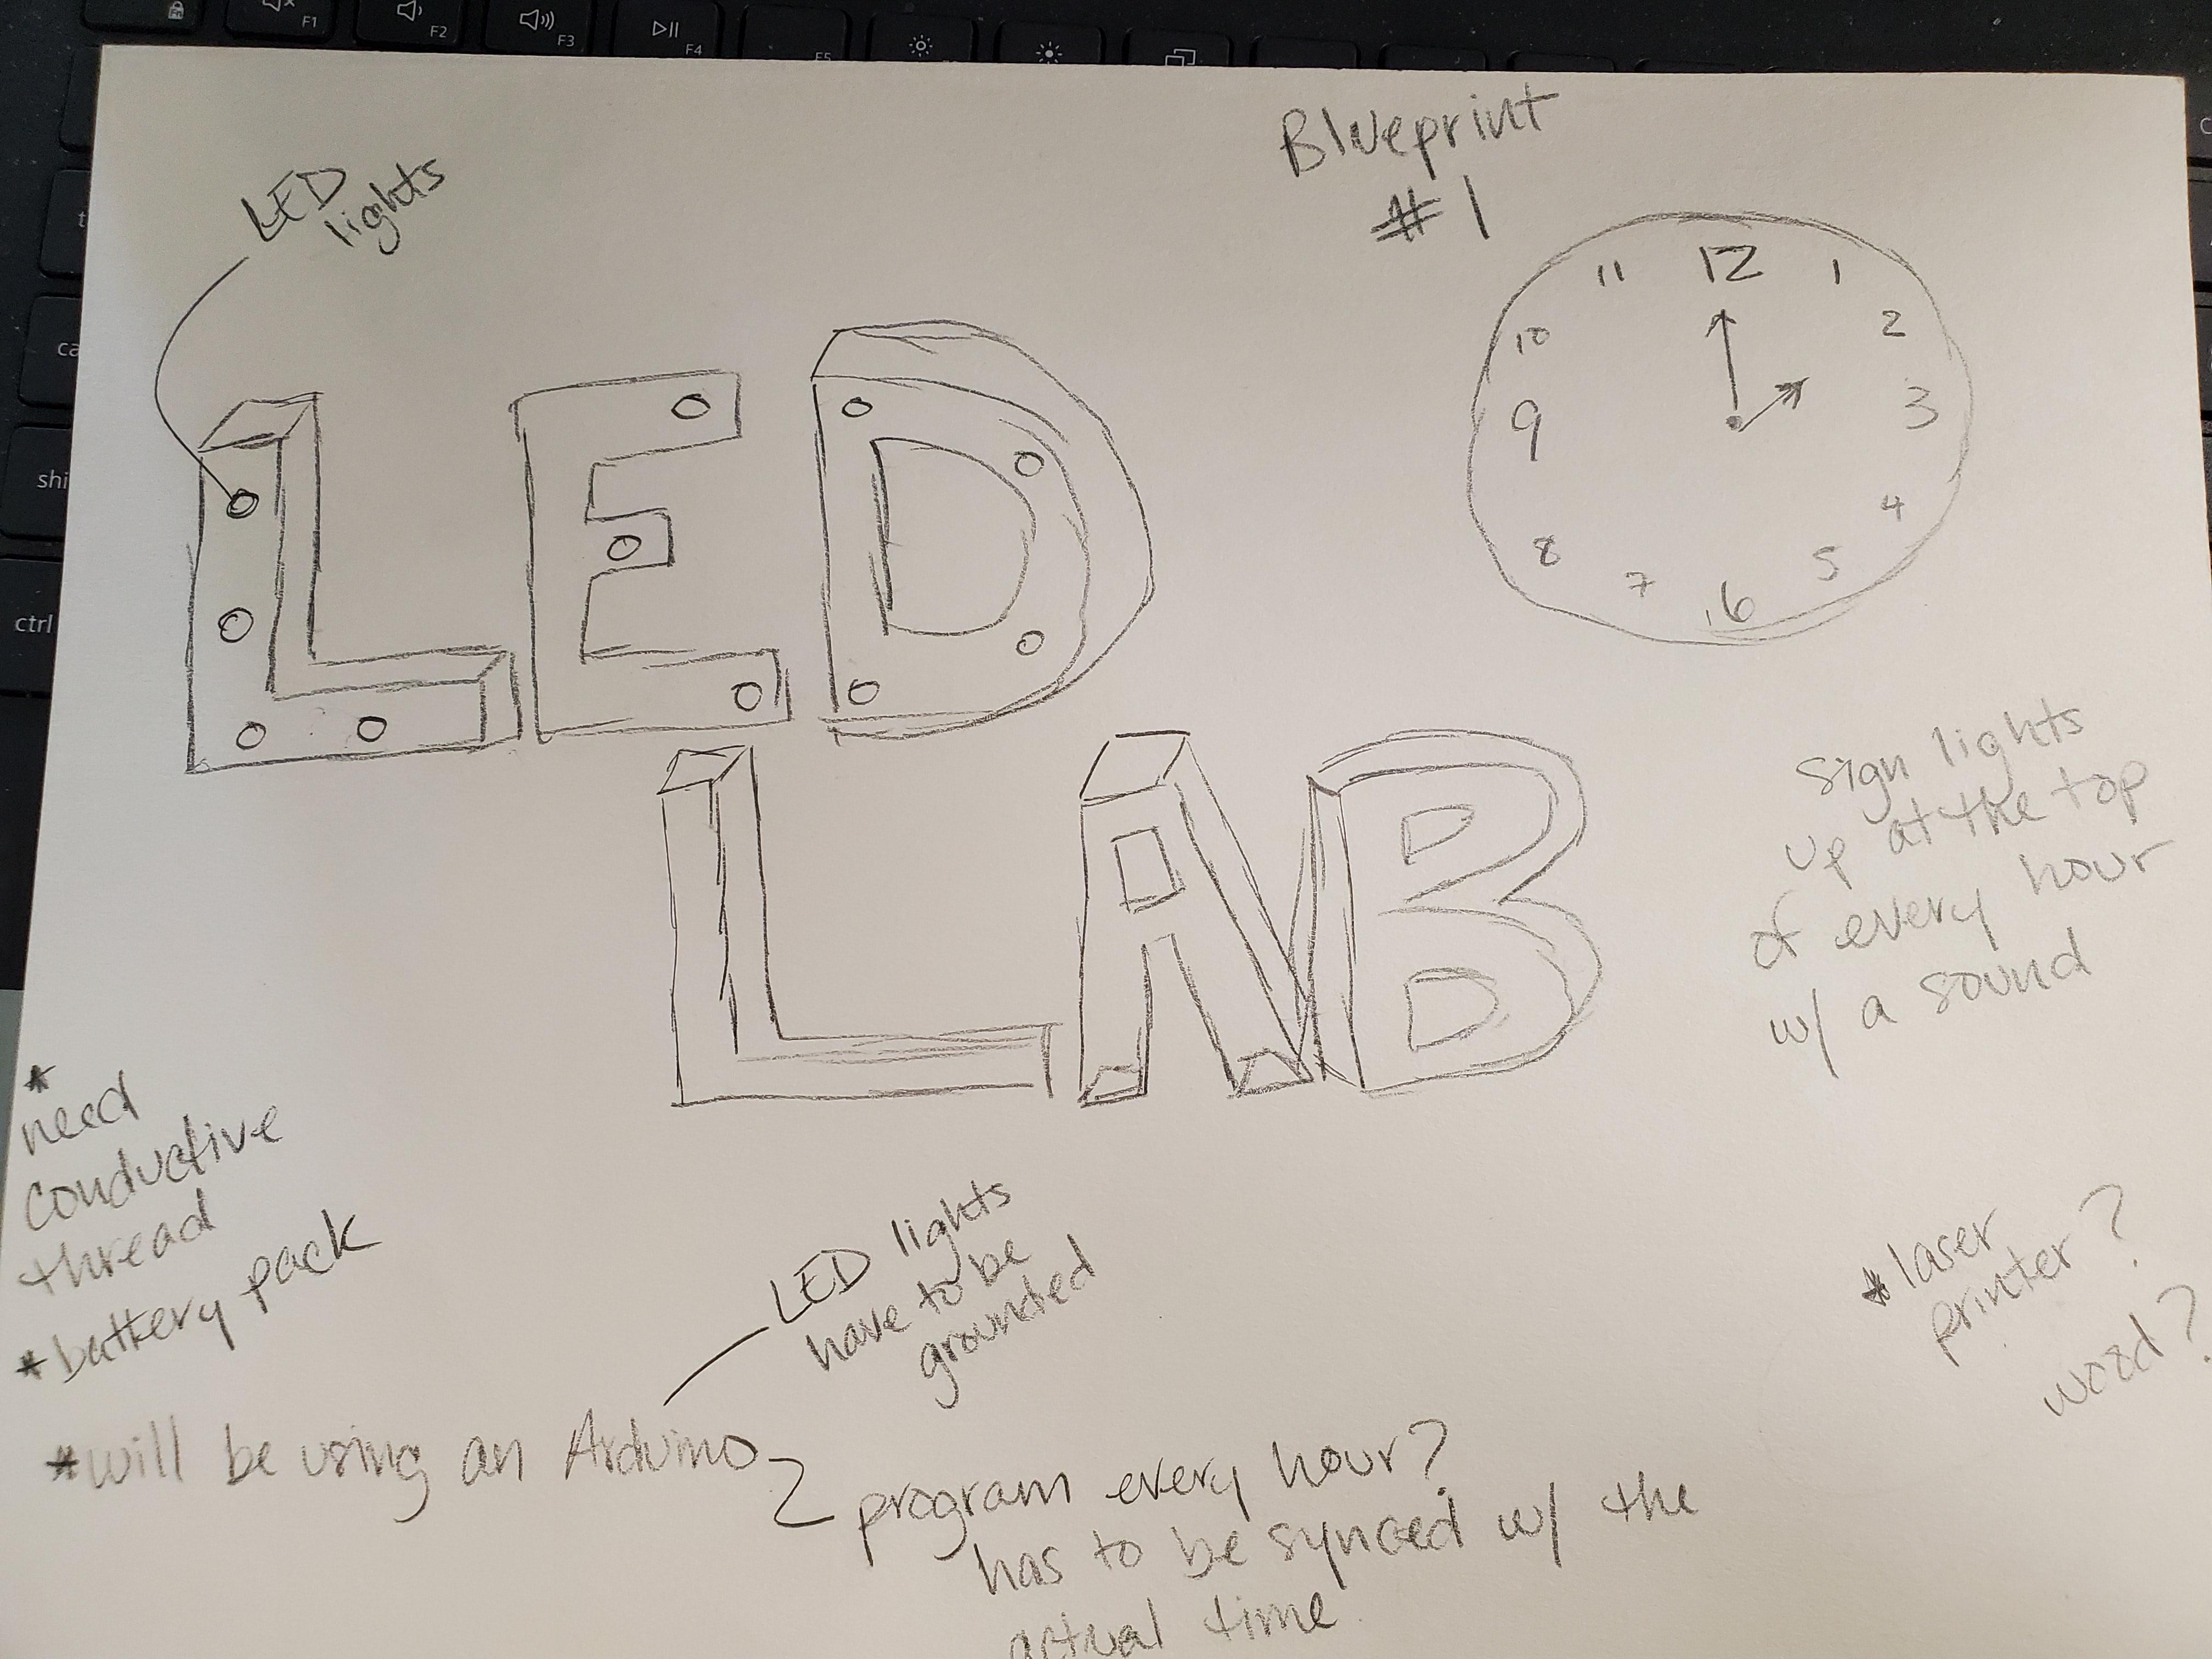 F1
F2
F3
F4
F5
Blueprint
#1
LED
lights
11 12 1
10 2
9 3
8 4
7 6 5
ctrl
LED
LAB
Sign lights
up at the top
of every hour
w/ a sound
* need
conductive
thread
* battery pack
LED lights
have to be
grounded
* laser
printer?
wood?
* will be using an Arduino
program every hour?
has to be synced w/ the
actual time.